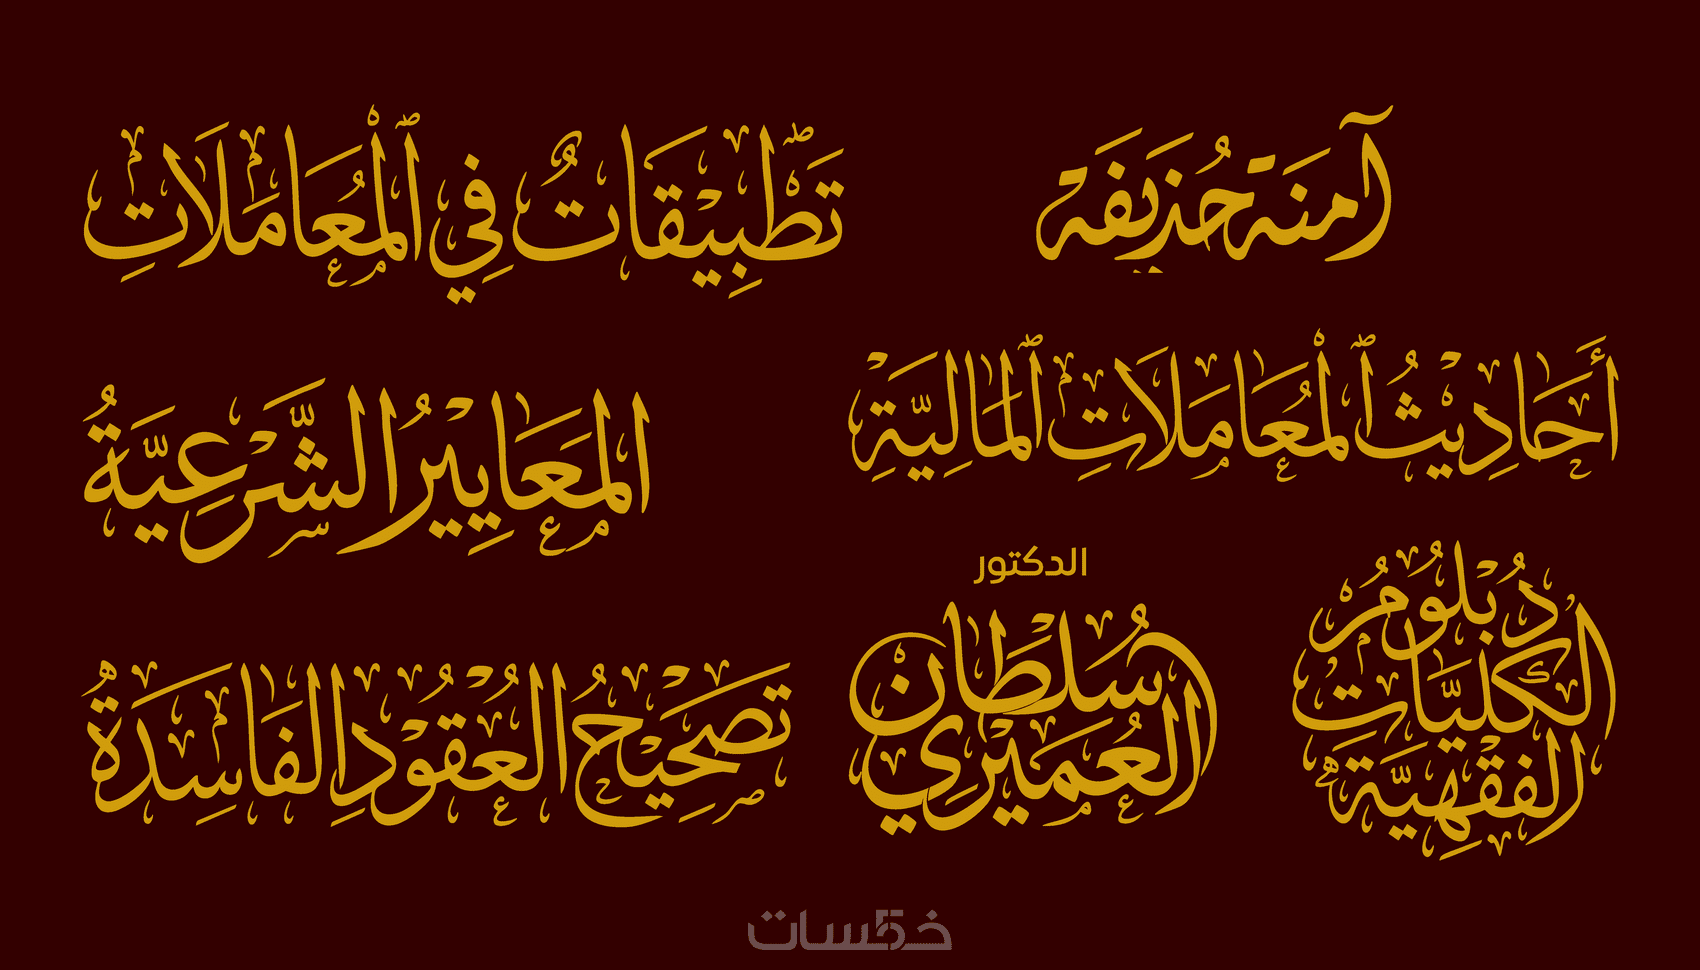 آمِنَة حُذَيفَة
تَطْبِيْقَاتٌ فِي ٱلْمُعَامَلَاتِ
أَحَادِيْثُ ٱلْمُعَامَلَاتِ ٱلْمَالِيَّةِ
المَعَايِيْرُ الشَّرْعِيَّةُ
الدكتور
سُلْطَان
العُمَيْرِي
دُبْلُومُ
الكُلِّيَّات
الفِقْهِيَّة
تَصْحِيْحُ العُقُوْدِ الفَاسِدَةُ
خمسات